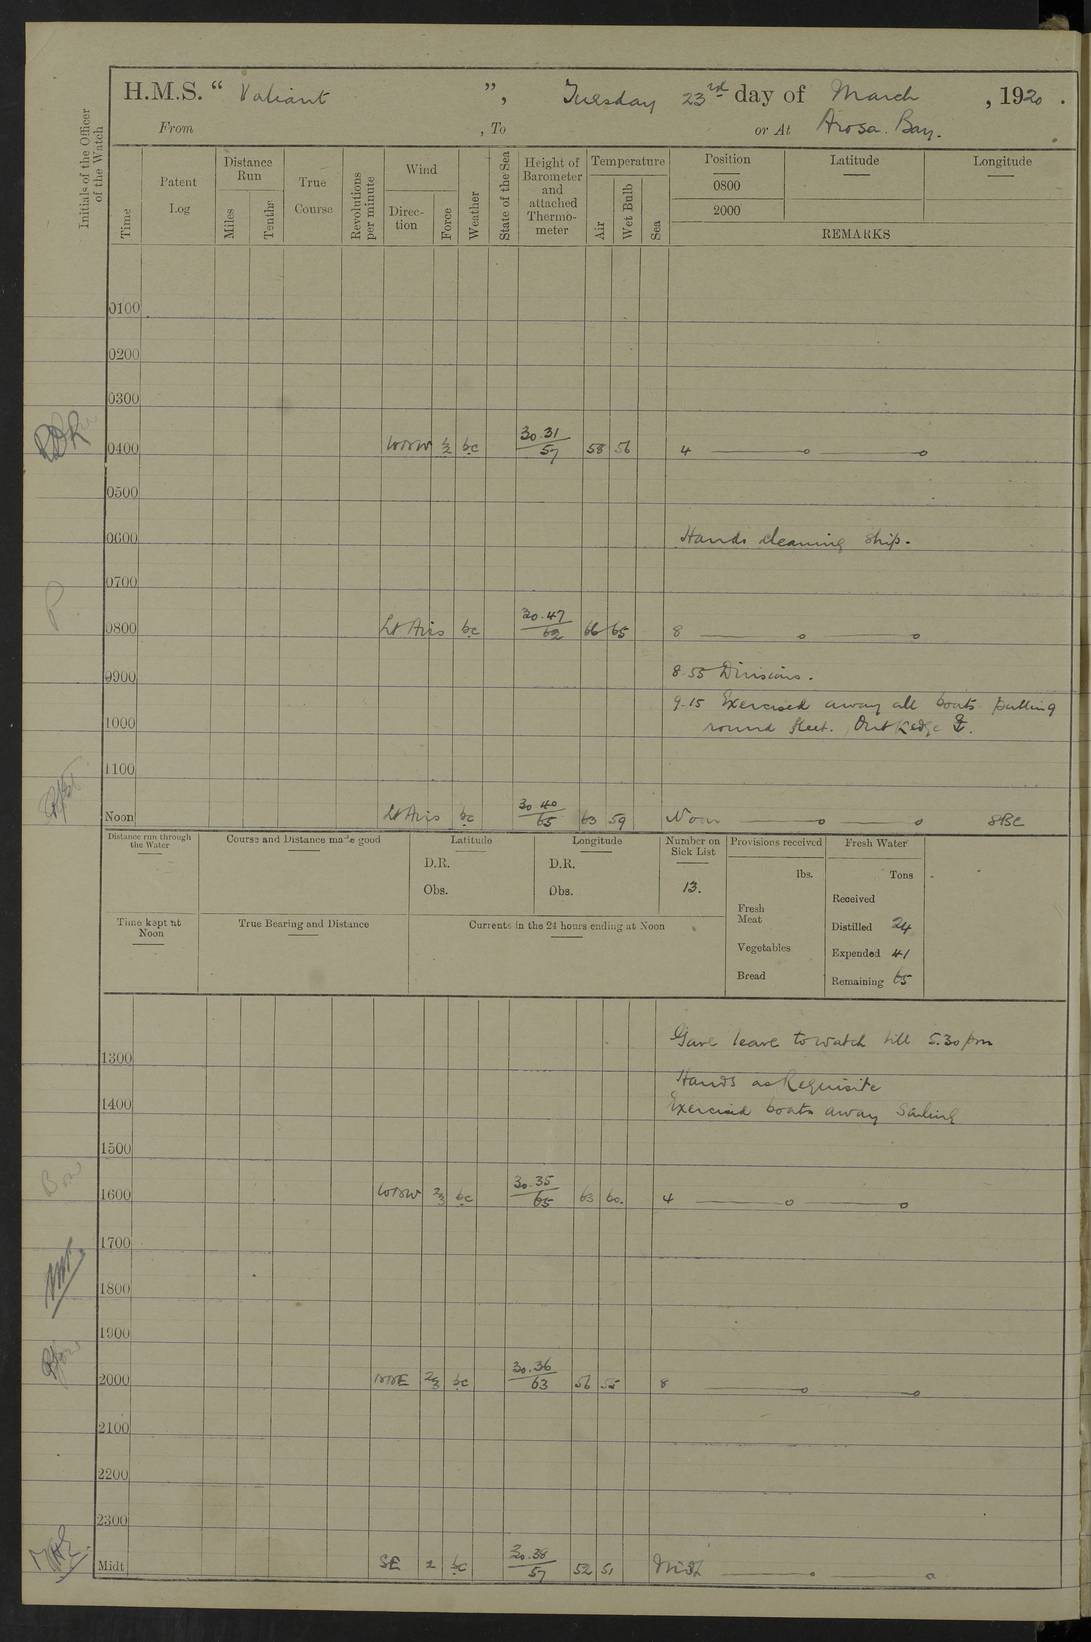 H.M.S. “ Valiant ”, Tuesday 23rd day of March , 1920 .
From , To or At Arosa Bay.
Initials of the Officer of the Watch
Time
Patent Log
Distance Run
Miles
Tenths
True Course
Revolutions per minute
Wind
Direc-tion
Force
Weather
State of the Sea
Height of Barometer and attached Thermo-meter
Temperature
Air
Wet Bulb
Sea
Position Latitude Longitude
0800
2000
REMARKS
0100
0200
0300
0400 WNW 1/2 bc 30.31/57 58 56 4
0500
0600 Hands cleaning ship.
0700
0800 Lt Airs bc 30.47/62 66 65 8
0900 8.55 Divisions.
9.15 Exercised away all boats pulling
1000 round fleet. Out Kedge &.
1100
Noon Lt Airs bc 30.40/65 63 59 Noon
Distance run through the Water
Course and Distance made good
Latitude
D.R.
Obs.
Longitude
D.R.
Obs.
Number on Sick List
13.
Provisions received
lbs.
Fresh Meat
Vegetables
Bread
Fresh Water
Tons
Received
Distilled 24
Expended 41
Remaining 65
Time kept at Noon
True Bearing and Distance
Currents in the 24 hours ending at Noon
Gave leave to watch till 5.30 pm
1300
Hands as Requisite
1400 Exercised boats away Sailing
1500
1600 WNW 2/3 bc 30.35/65 63 60. 4
1700
1800
1900
2000 NNE 2/3 bc 30.36/63 56 55 8
2100
2200
2300
Midt SE 2 bc 30.38/57 52 51 Midt